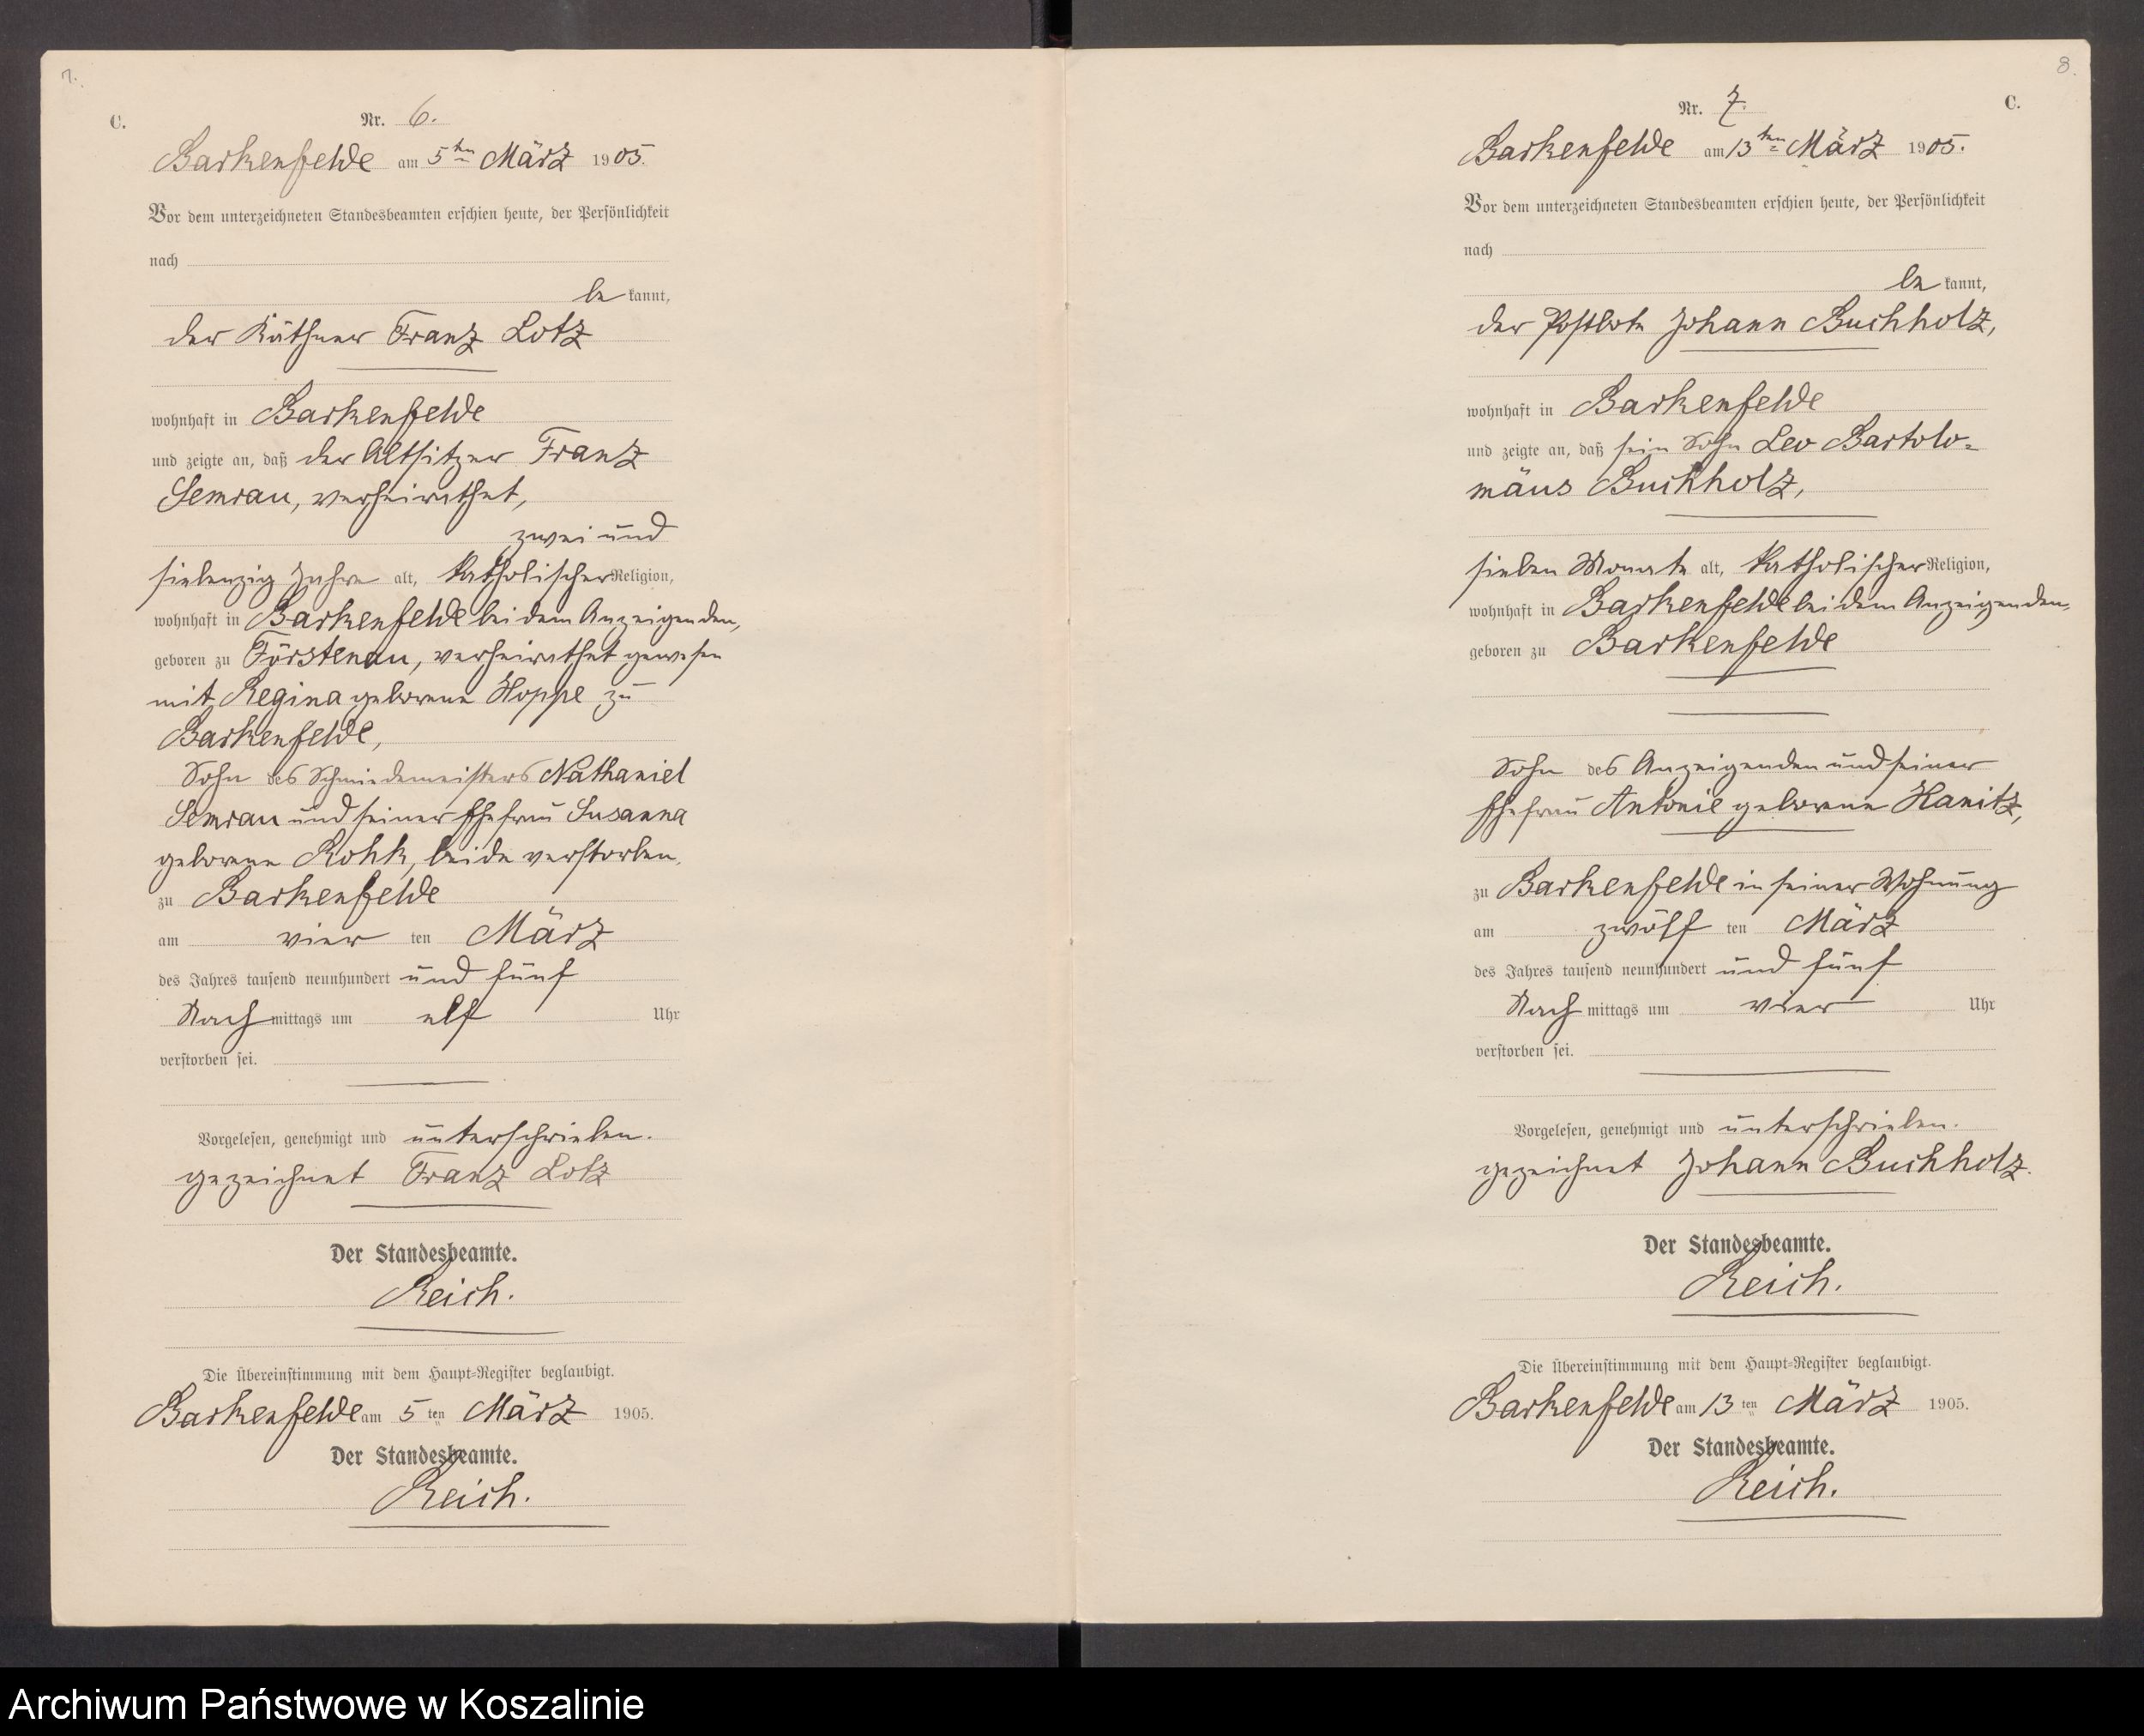 7.
C.
Nr. 6.
Barkenfelde am 5ten März 1905.
Vor dem unterzeichneten Standesbeamten erschien heute, der Persönlichkeit
nach
be kannt,
der Käthner Franz Lotz
wohnhaft in Barkenfelde
und zeigte an, daß der Altsitzer Franz
Semrau, verheirathet,
zwei und
siebenzig Jahre alt, katholischer Religion,
wohnhaft in Barkenfelde bei dem Anzeigenden,
geboren zu Förstenau, verheirathet gewesen
mit Regina geborene Hoppe zu
Barkenfelde,
Sohn des Schmiedemeisters Nathaniel
Semrau und seiner Ehefrau Susanna
geborene Rohk, beide verstorben.
zu Barkenfelde
am vier ten März
des Jahres tausend neunhundert und fünf
Nach mittags um elf Uhr
verstorben sei.
Vorgelesen, genehmigt und unterschrieben.
gezeichnet Franz Lotz
Der Standesbeamte.
Reich.
Die Übereinstimmung mit dem Haupt-Register beglaubigt.
Barkenfelde am 5 ten März 1905.
Der Standesbeamte.
Reich.
8.
C.
Nr. 7.
Barkenfelde am 13ten März 1905.
Vor dem unterzeichneten Standesbeamten erschien heute, der Persönlichkeit
nach
be kannt,
der Postbote Johann Buchholz,
wohnhaft in Barkenfelde
und zeigte an, daß sein Sohn Leo Bartolo-
mäus Buchholz,
sieben Monate alt, katholischer Religion,
wohnhaft in Barkenfelde bei dem Anzeigenden,
geboren zu Barkenfelde
Sohn des Anzeigenden und seiner
Ehefrau Antonie geborene Hanitz,
zu Barkenfelde in seiner Wohnung
am zwölf ten März
des Jahres tausend neunhundert und fünf
Nach mittags um vier Uhr
verstorben sei.
Vorgelesen, genehmigt und unterschrieben.
gezeichnet Johann Buchholz.
Der Standesbeamte.
Reich.
Die Übereinstimmung mit dem Haupt-Register beglaubigt.
Barkenfelde am 13 ten März 1905.
Der Standesbeamte.
Reich.
Archiwum Państwowe w Koszalinie